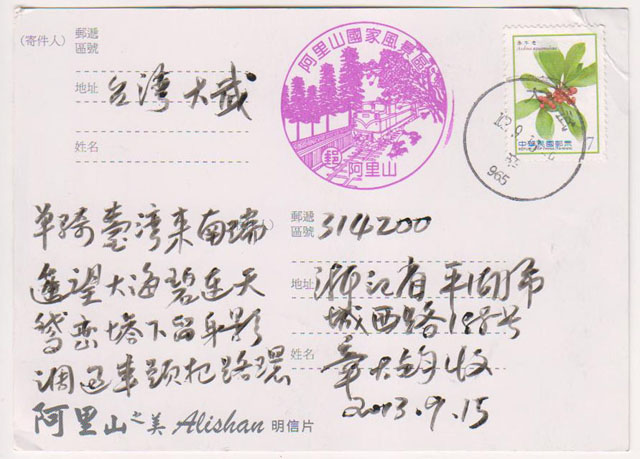 (寄件人)
郵遞
區號
地址
台灣大武
姓名
阿里山國家風景區
郵
阿里山
中華民國郵票
7
965
單騎臺灣来南端
遙望大海碧連天
鵞峦塔下留身影
调过車頭把路環
阿里山之美 Alishan 明信片
郵遞
區號
314200
地址
浙江省平湖市
城西路198号
姓名
章大钧收
2013.9.15